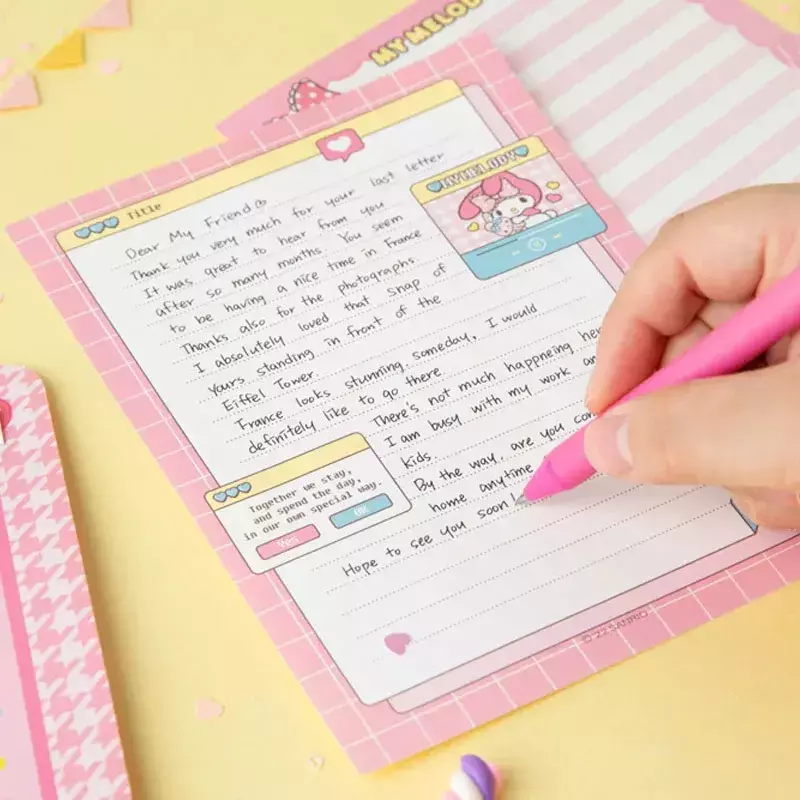 MY MELODY
Title
MYMELODY
Dear My Friend
Thank you very much for your last letter
It was great to hear from you
after so many months. You seem
to be having a nice time in France
Thanks also for the photographs
I absolutely loved that snap of
yours standing in front of the
Eiffel Tower.
France looks stunning, someday, I would
definitely like to go there
There's not much happneing her
I am busy with my work an
kids.
By the way, are you co
home anytime
Hope to see you soon!
Together we stay,
and spend the day,
in our own special way.
Yes
OK
© '22 SANRIO